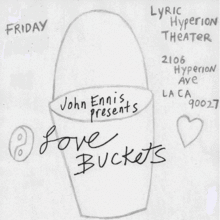 FRIDAY
LYRIC
HYPERION
THEATER
2106
HYPERION
AVE
LA CA
90027
John Ennis
presents
Love
BUCKETS